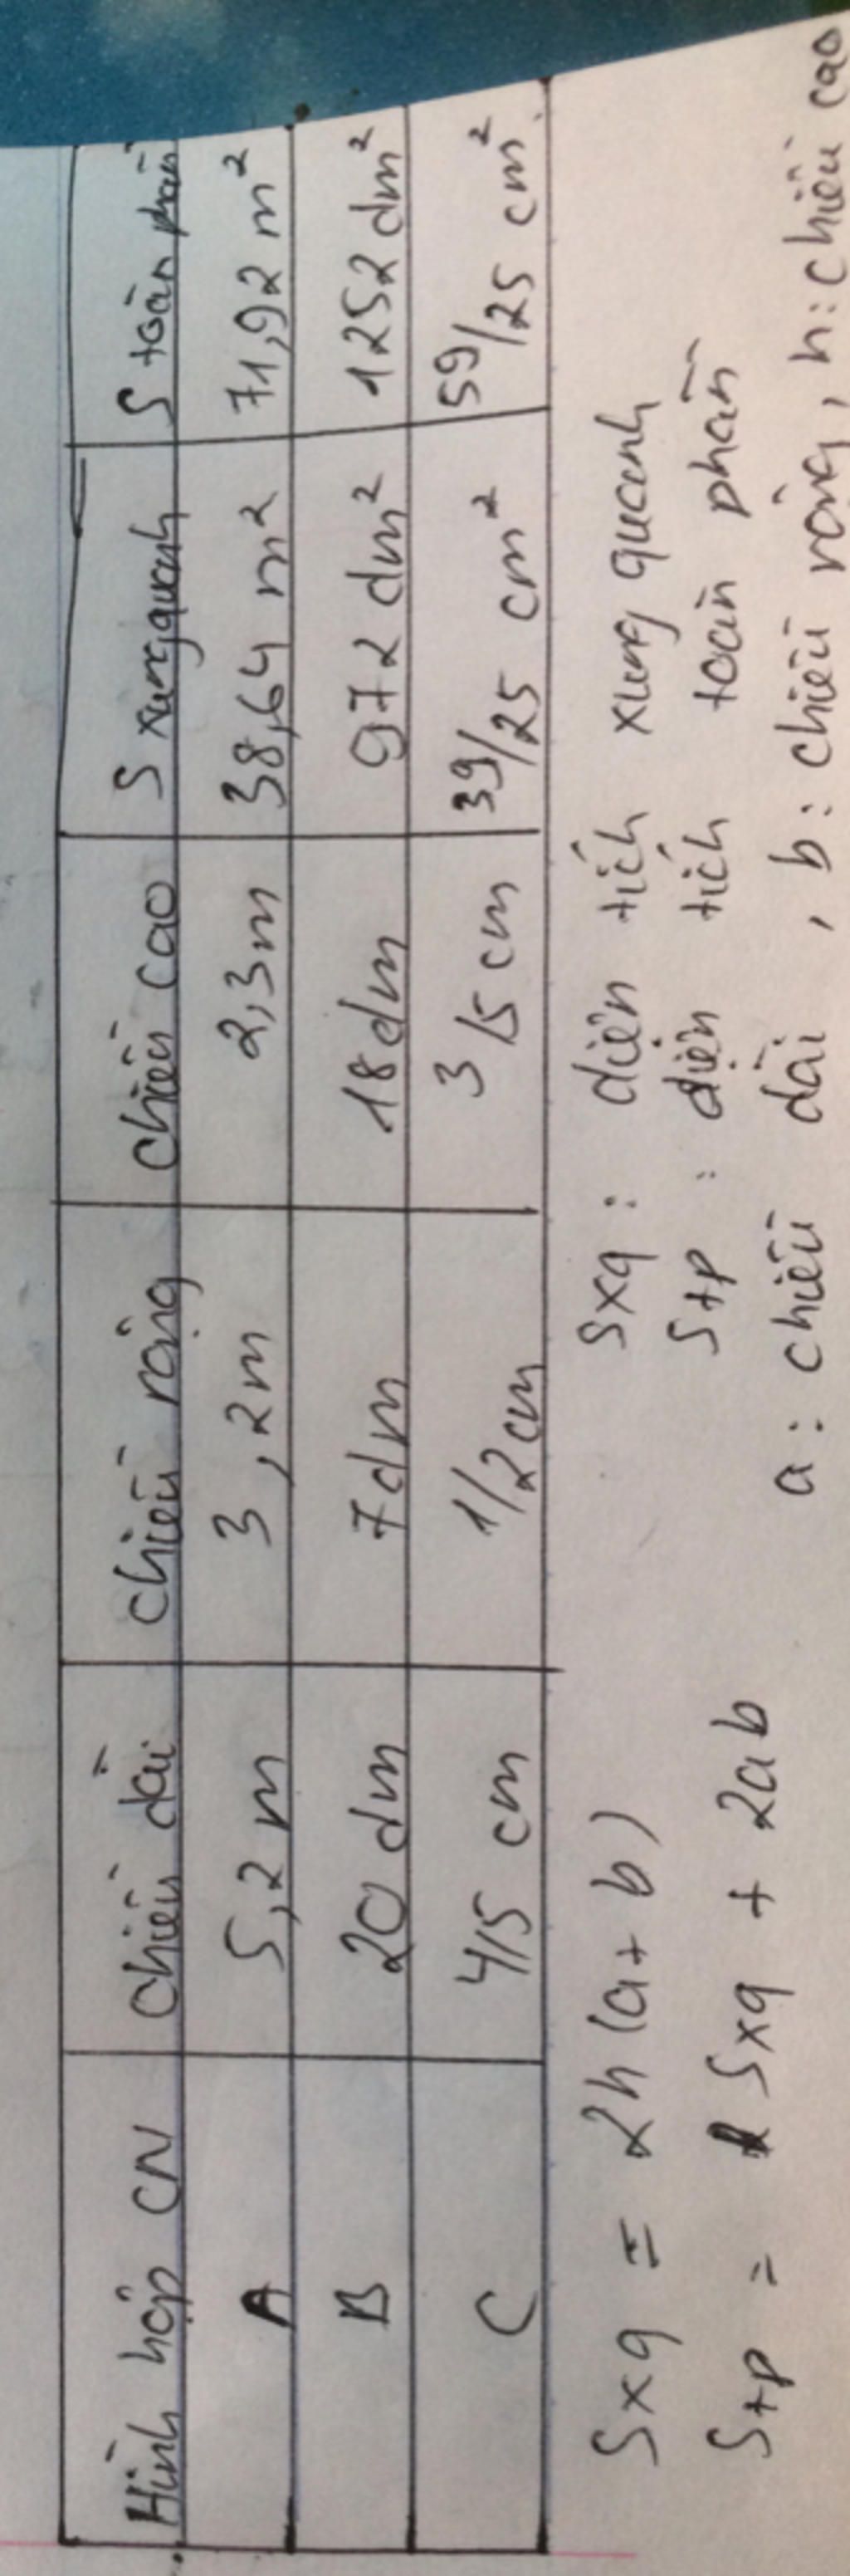 Hình hộp CN chiều dài chiều rộng chiều cao S xung quanh S toàn phần
A 5,2 m 3,2m 2,3m 38,64 m² 71,92 m²
B 20 dm 7dm 18dm 972 dm² 1252 dm²
C 4/5 cm 1/2cm 3/5cm 39/25 cm² 59/25 cm²
Sxq = 2h(a+b) Sxq : diện tích xung quanh
Stp = Sxq + 2ab Stp : diện tích toàn phần
a: chiều dài , b: chiều rộng, h: chiều cao